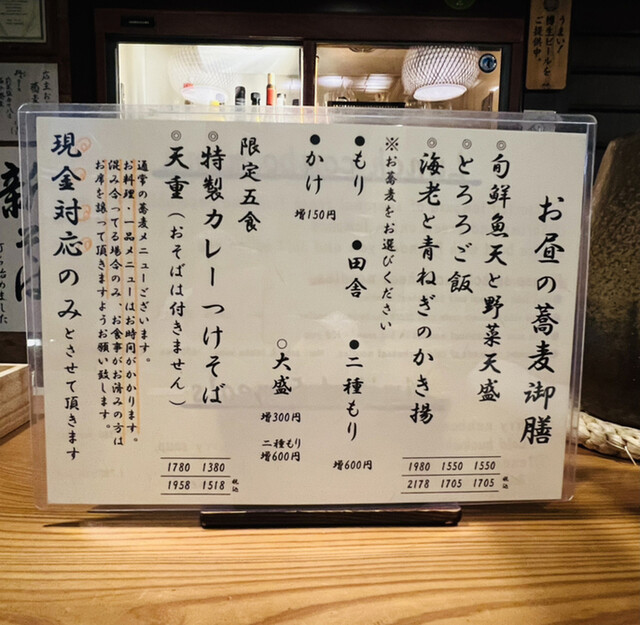 お昼の蕎麦御膳
◎旬鮮魚天と野菜天盛
1550
1705
税込
◎とろろご飯
1550
1705
◎海老と青ねぎのかき揚
1980
2178
※お蕎麦をお選びください
●もり ●田舎 ●二種もり
増600円
●かけ
増150円
○大盛
増300円
二種もり
増600円
限定五食
◎特製カレーつけそば
1380
1518
税込
◎天重(おそばは付きません)
1780
1958
通常の蕎麦メニューございます。
お料理、一品メニューはお時間がかかります。
混み合ってる場合のみ、お食事がお済みの方は
お席を譲って頂きますようお願い致します。
現金対応のみとさせて頂きます
うまい!
樽生ビールを
ご提供中。
新そば
打ち始めました